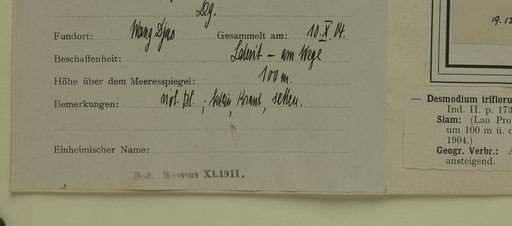 Dg.
Fundort: Wang Djao Gesammelt am: 10.X.04.
Beschaffenheit: Laterit – am Wege
Höhe über dem Meeresspiegel: 100 m.
Bemerkungen: viol. Bl.; klein, Kraut, selten.
Einheimischer Name:
Ded. Hosseus XI.1911.
19.12
— Desmodium triflorum
Ind. II. p. 173
Siam: (Lao Pro
um 100 m ü. d
1904.)
Geogr. Verbr.:
ansteigend.